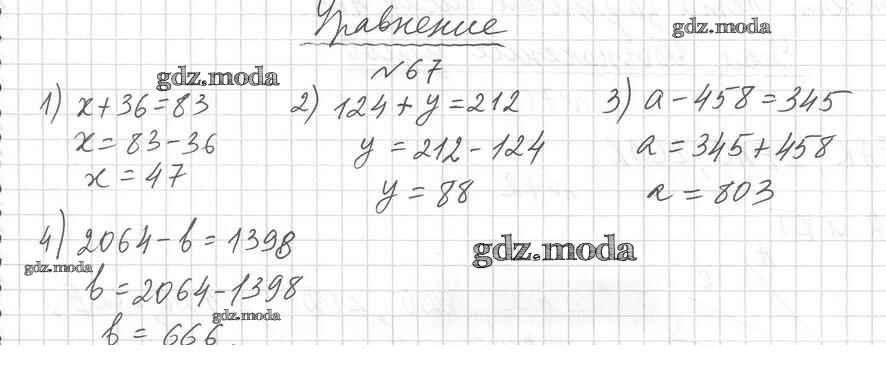 Уравнение
gdz.moda
№67
gdz.moda
1) x+36=83
x=83-36
x=47
2) 124+y=212
y=212-124
y=88
3) a-458=345
a=345+458
a=803
4) 2064-b=1398
gdz.moda
b=2064-1398
gdz.moda
b=666
gdz.moda